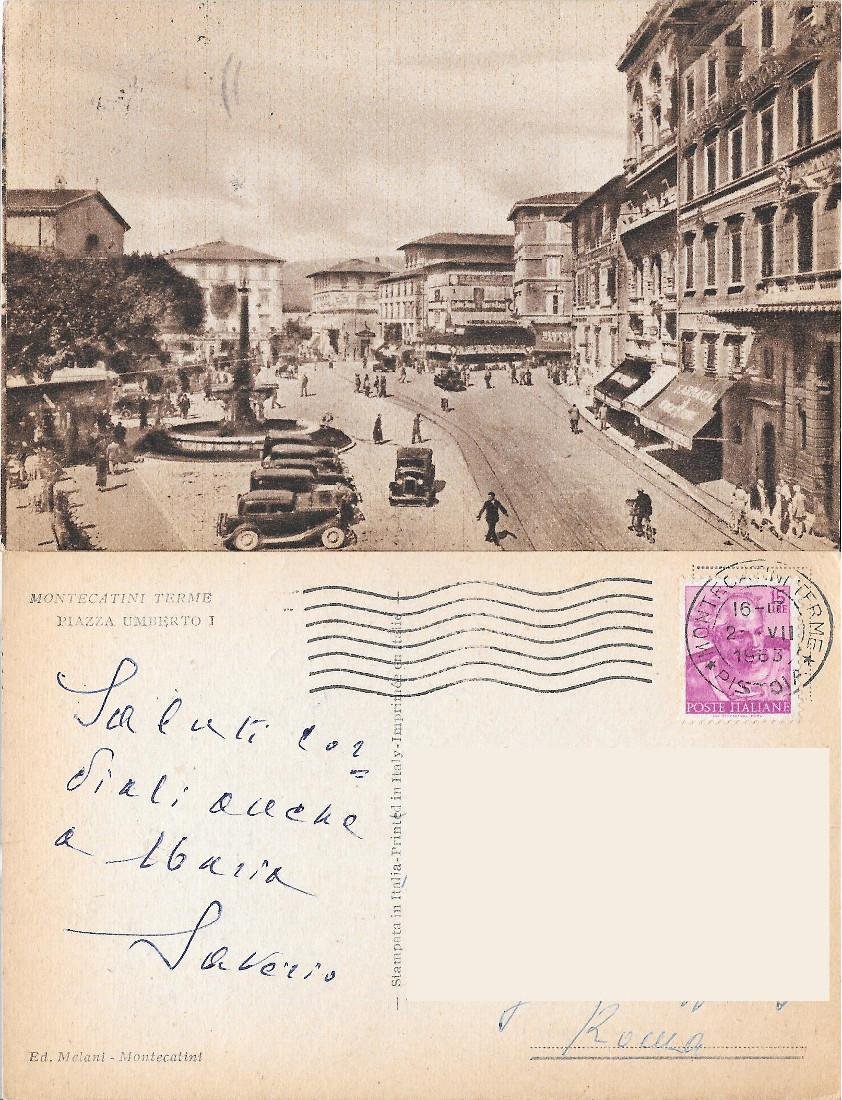 FARMACIA
MONTECATINI TERME
PIAZZA UMBERTO I
MONTECATINI TERME
15
LIRE
16-
2- VII
1963
PISTOIA
POSTE ITALIANE
Saluti cor=
diali anche
a Maria
Saverio
Stampata in Italia-Printed in Italy-Imprimée en Italie
Roma
Ed. Melani - Montecatini